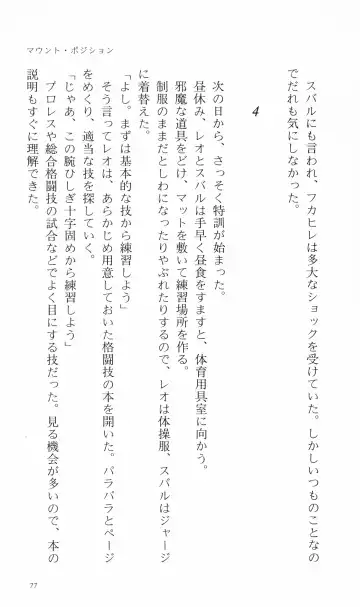 マウント・ポジション
スバルにも言われ、フカヒレは多大なショックを受けていた。しかしいつものことなの
でだれも気にしなかった。
4
次の日から、さっそく特訓が始まった。
昼休み、レオとスバルは手早く昼食をすますと、体育用具室に向かう。
邪魔な道具をどけ、マットを敷いて練習場所を作る。
制服のままだとしわになったりやぶれたりするので、レオは体操服、スバルはジャージ
に着替えた。
「よし。まずは基本的な技から練習しよう」
そう言ってレオは、あらかじめ用意しておいた格闘技の本を開いた。パラパラとページ
をめくり、適当な技を探していく。
「じゃあ、この腕ひしぎ十字固めから練習しよう」
プロレスや総合格闘技の試合などでよく目にする技だった。見る機会が多いので、本の
説明もすぐに理解できた。
77